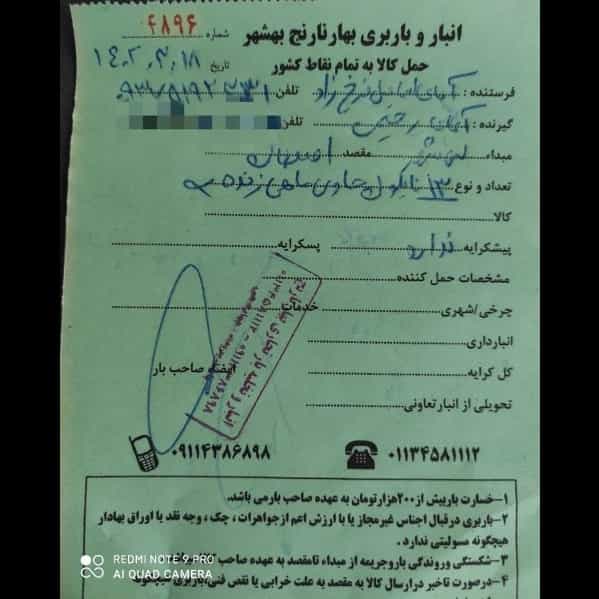 انبار و باربری بهارنارنج بهشهر
شماره ۴۸۹۶
حمل کالا به تمام نقاط کشور
تاریخ ۱۴۰۲.۳.۱۸
فرستنده : آقای اسماعیل فرخ زاد تلفن
گیرنده : آقای رحیمی تلفن
مبداء بهشهر مقصد اصفهان
تعداد و نوع ۱۳ نایلون حاوی ماهی زنده
کالا
پیشکرایه ندارد پسکرایه
مشخصات حمل کننده
چرخی/شهری خدمات
انبارداری
کل کرایه امضاء صاحب بار
تحویلی از انبارتعاونی
۰۹۱۱۴۳۸۶۸۹۸ ۰۱۱۳۴۵۸۱۱۱۲
۱-خسارت بارپیش از ۲۰۰هزارتومان به عهده صاحب بارمی باشد.
۲-باربری درقبال اجناس غیرمجاز یا با ارزش اعم ازجواهرات ، چک ، وجه نقد یا اوراق بهادار
هیچگونه مسولیتی ندارد .
۳-شکستگی وروندگی باروجریمه از مبداء تامقصد به عهده صاحب
۴-درصورت تاخیر درارسال کالا به مقصد به علت خرابی یا نقص فنی،باربری هیچگونه
REDMI NOTE 9 PRO
AI QUAD CAMERA